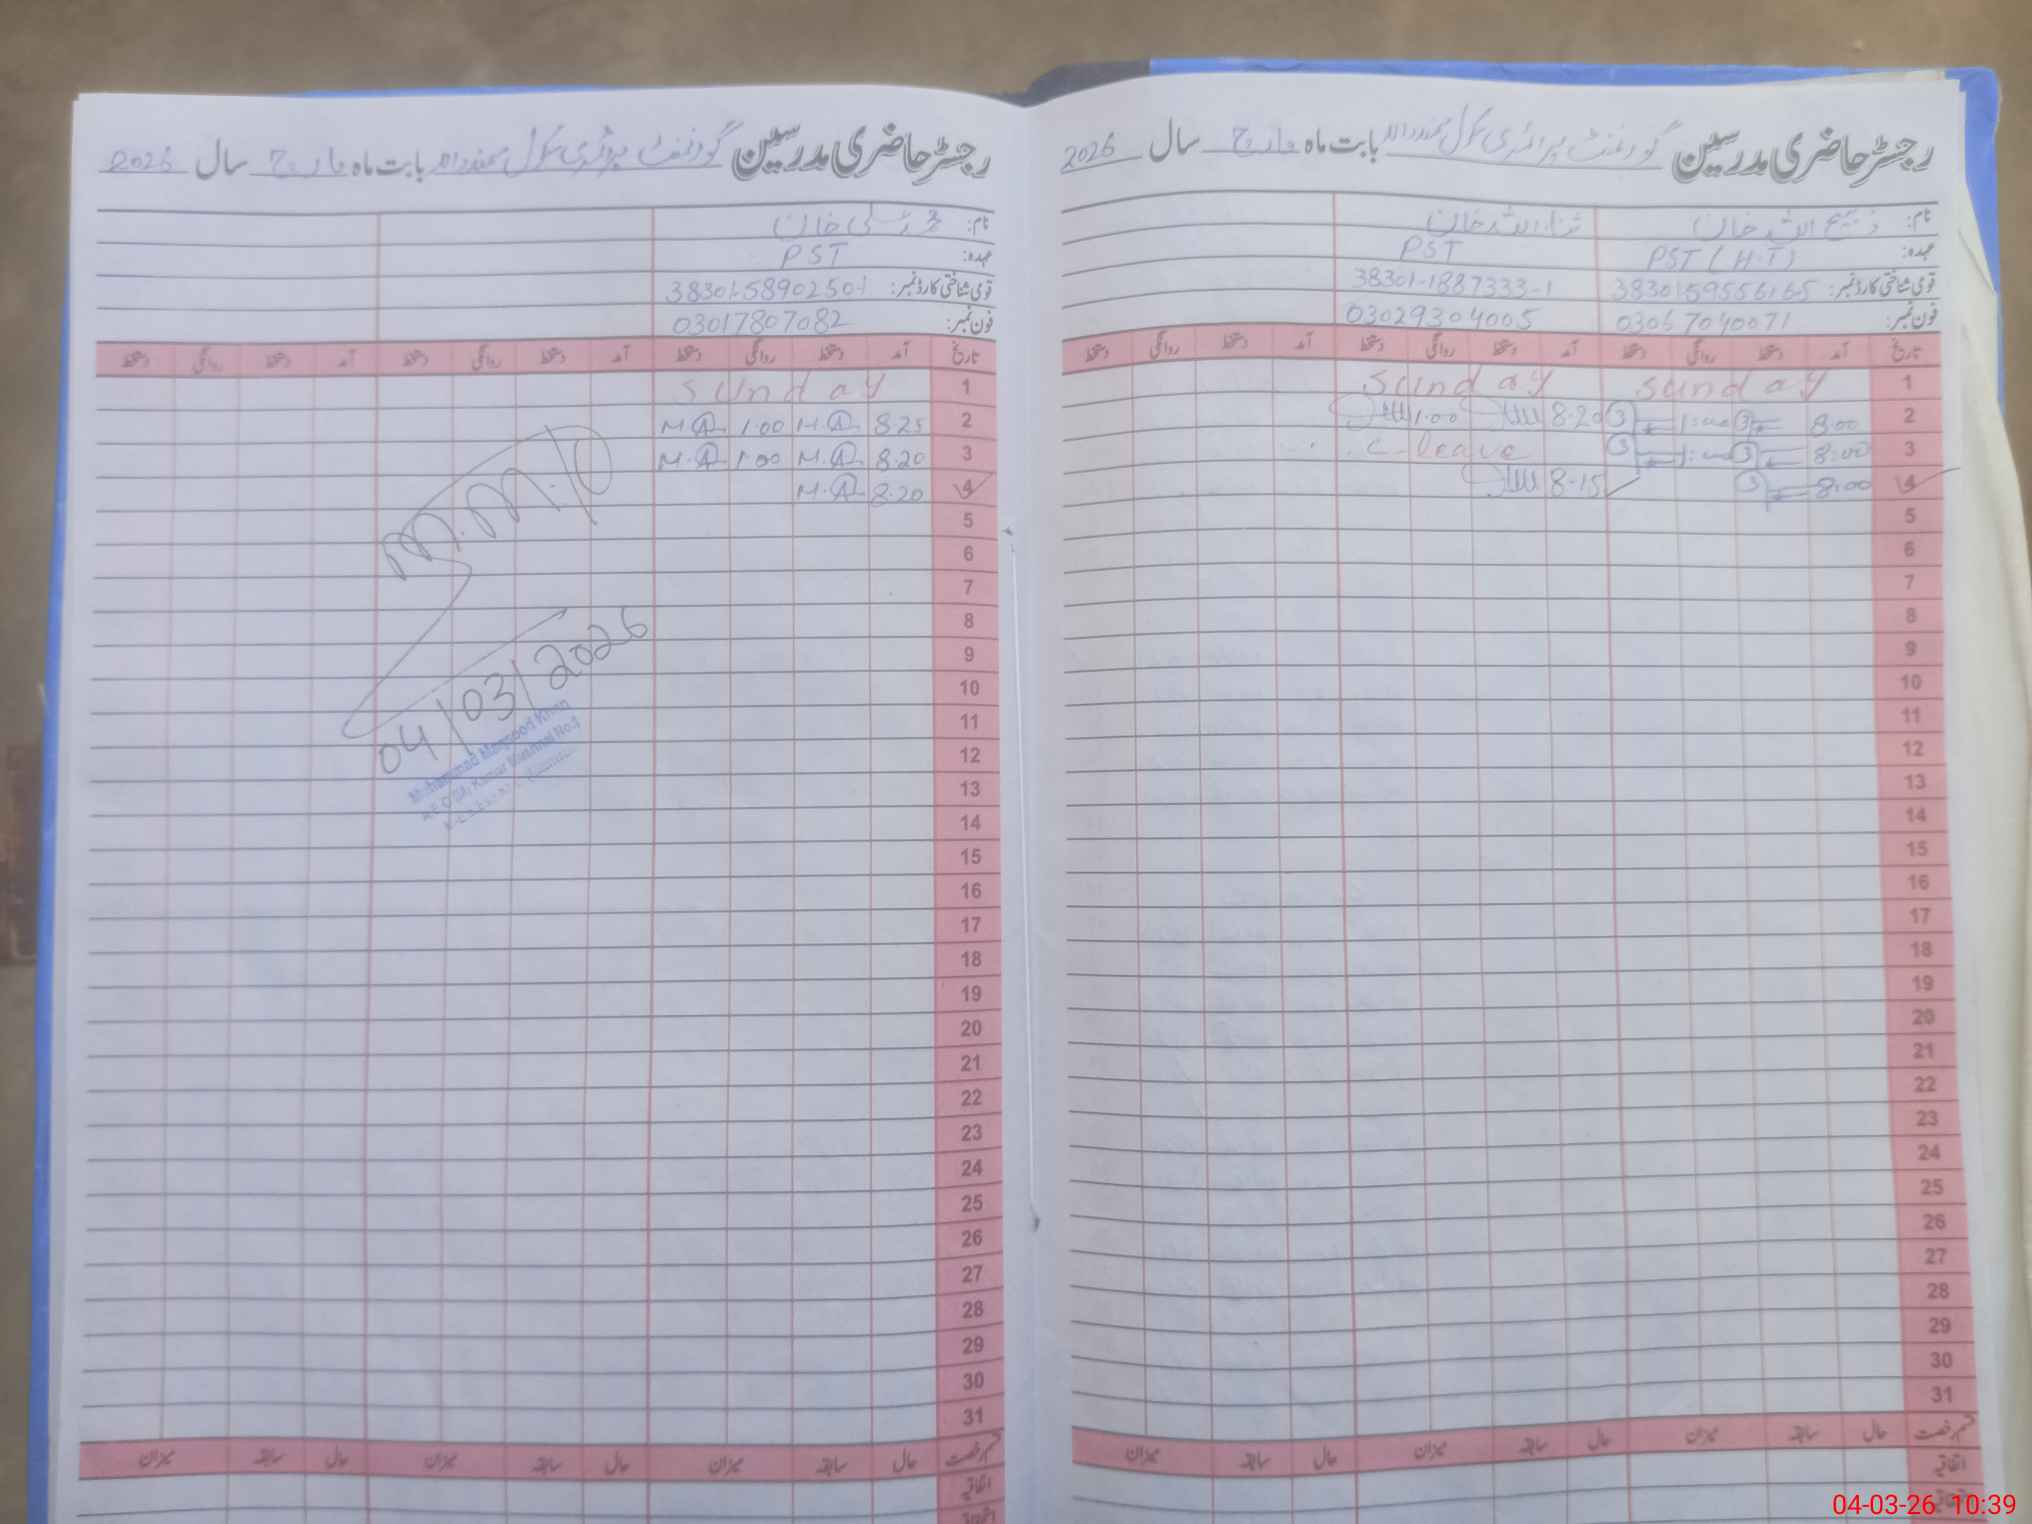 رجسٹر حاضری مدرسین گورنمنٹ پرائمری سکول بابت ماہ مارچ سال 2026
نام: ذبیح اللہ خان ثناء اللہ خان
عہدہ: PST (H.T) PST
قومی شناختی کارڈ نمبر: 3830159556165 38301-1887333-1
فون نمبر: 03067040071 03029304005
تاریخ آمد دستخط روانگی دستخط آمد دستخط روانگی دستخط آمد دستخط روانگی دستخط
1 Sunday Sunday
2 8:00 1:00 8-20 1:00
3 8:00 1:00 C-leave
4 8:00 8-15
5
6
7
8
9
10
11
12
13
14
15
16
17
18
19
20
21
22
23
24
25
26
27
28
29
30
31
قسم رخصت حال سابقہ میزان حال سابقہ میزان حال سابقہ میزان
اتفاقیہ
رجسٹر حاضری مدرسین گورنمنٹ پرائمری سکول بابت ماہ مارچ سال 2026
نام: خان
عہدہ: PST
قومی شناختی کارڈ نمبر: 38301-5890250-1
فون نمبر: 03017807082
تاریخ آمد دستخط روانگی دستخط آمد دستخط روانگی دستخط آمد دستخط روانگی دستخط
1 Sunday
2 8.25 M.A 1.00 M.A
3 8.20 M.A 1.00 M.A
4 8.20 M.A
5
6
7
8
9
10
11
12
13
14
15
16
17
18
19
20
21
22
23
24
25
26
27
28
29
30
31
قسم رخصت حال سابقہ میزان حال سابقہ میزان حال سابقہ میزان
اتفاقیہ
04/03/2026
Muhammad Maqsood Khan
No.4
04-03-26 10:39